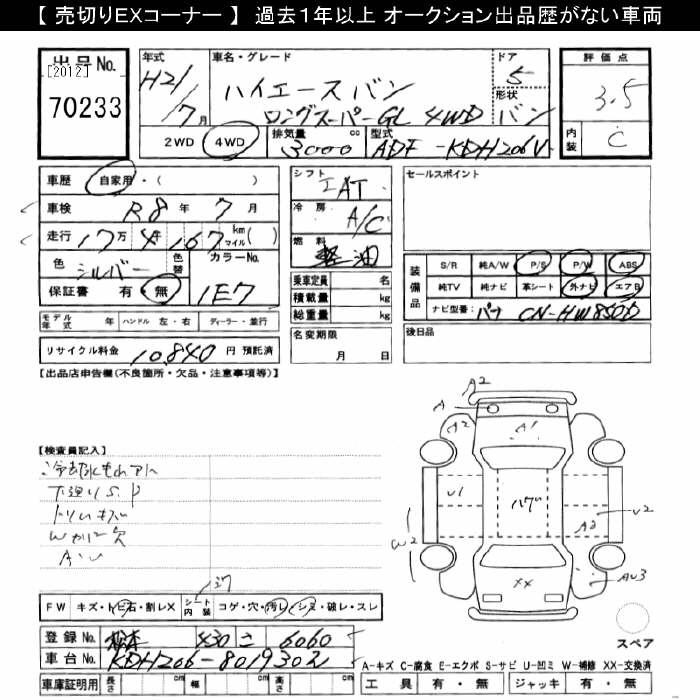 【 売切りEXコーナー 】 過去1年以上 オークション出品歴がない車両
出品No.
[2012]
70233
年式
H21/7月
車名・グレード
ハイエースバン
ロングスーパーGL 4WD
ドア
5
形状
バン
評価点
3.5
内装
C
2WD 4WD
排気量 cc
3000
型式
ADF-KDH206V
車歴 自家用・( )
車検 R8年 7月
走行 17万 4千 167 km マイル( )
色 シルバー
色替
カラーNo.
1E7
保証書 有・無
シフト
IAT
冷房
A/C
燃料
軽油
乗車定員 名
積載量 kg
総重量 kg
セールスポイント
装備品
S/R 純A/W P/S P/W ABS
純TV 純ナビ 革シート 外ナビ エアB
ナビ型番 パナ CN-HW850D
モデル年式 年 ハンドル 左・右 ディーラー・並行
名変期限
月 日
後日品
リサイクル料金 10,840 円 預託済
【出品店申告欄(不良箇所・欠品・注意事項等)】
【検査員記入】
下廻りS.P
A・U
A2
A
A2
A1
U1
ハゲ
A2
U2
W2
XX
AU3
スペア
FW キズ・トビ石・割レX
シート内装
コゲ・穴・汚レ・シミ・破レ・スレ
登録No. 松本 430 こ 6060
車台No. KDH206-8019302
A-キズ C-腐食 E-エクボ S-サビ U-凹ミ W-補修 XX-交換済
車庫証明用 長さ cm 幅 cm 高さ cm
工具 有・無 ジャッキ 有・無